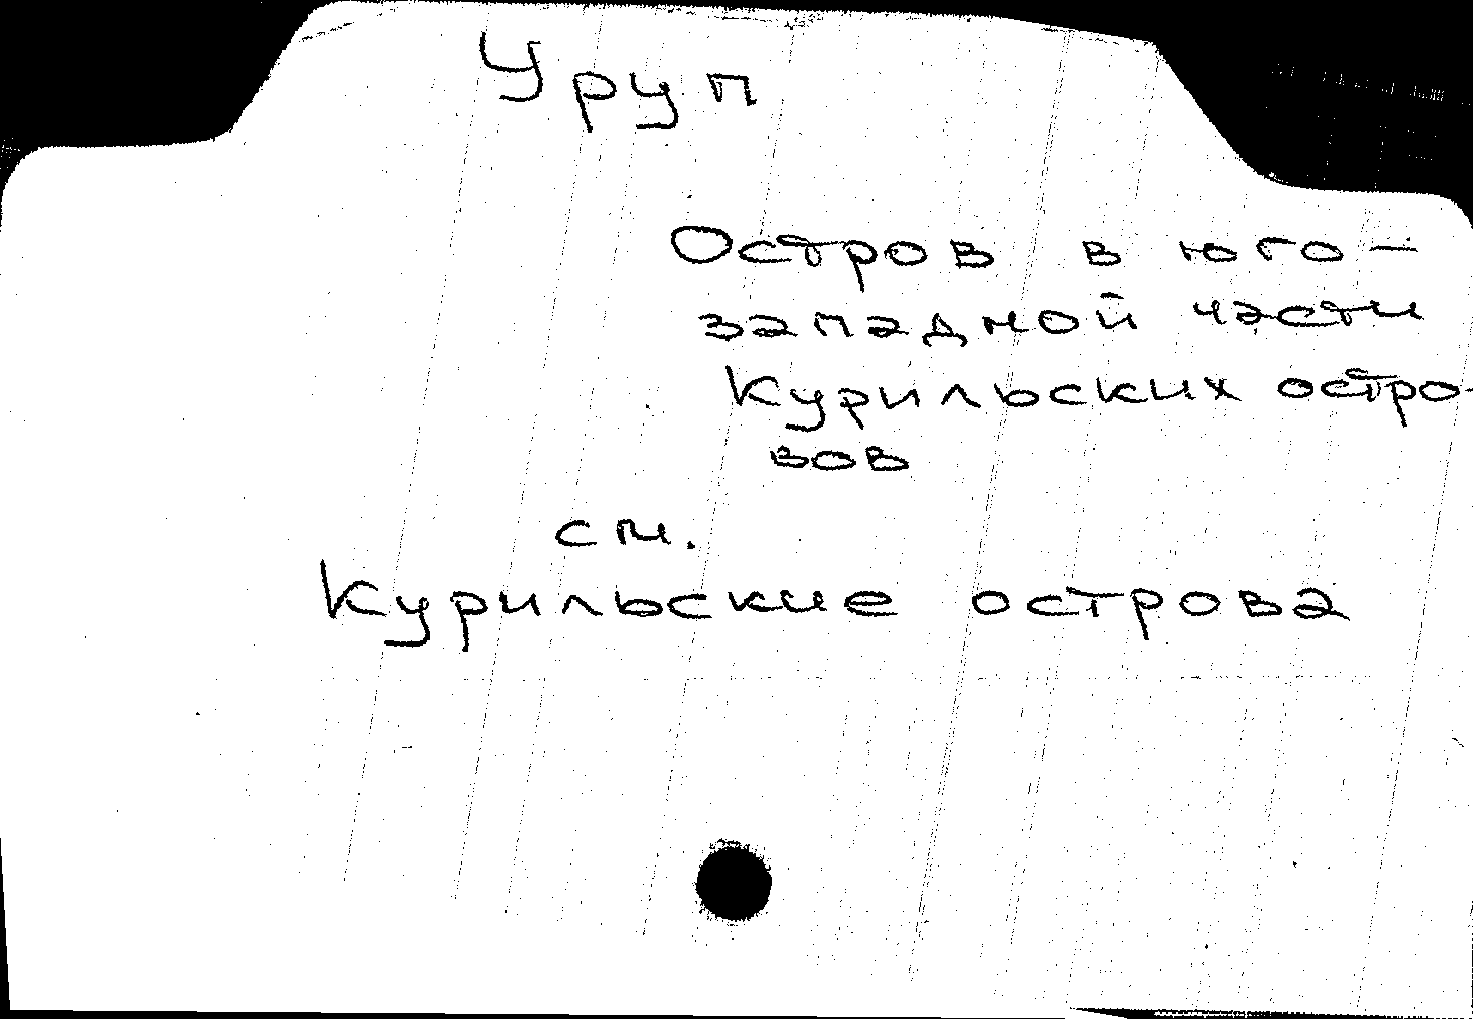 Уруп
Остров в юго-
западной части
Курильских остро-
вов
см.
Курильские острова